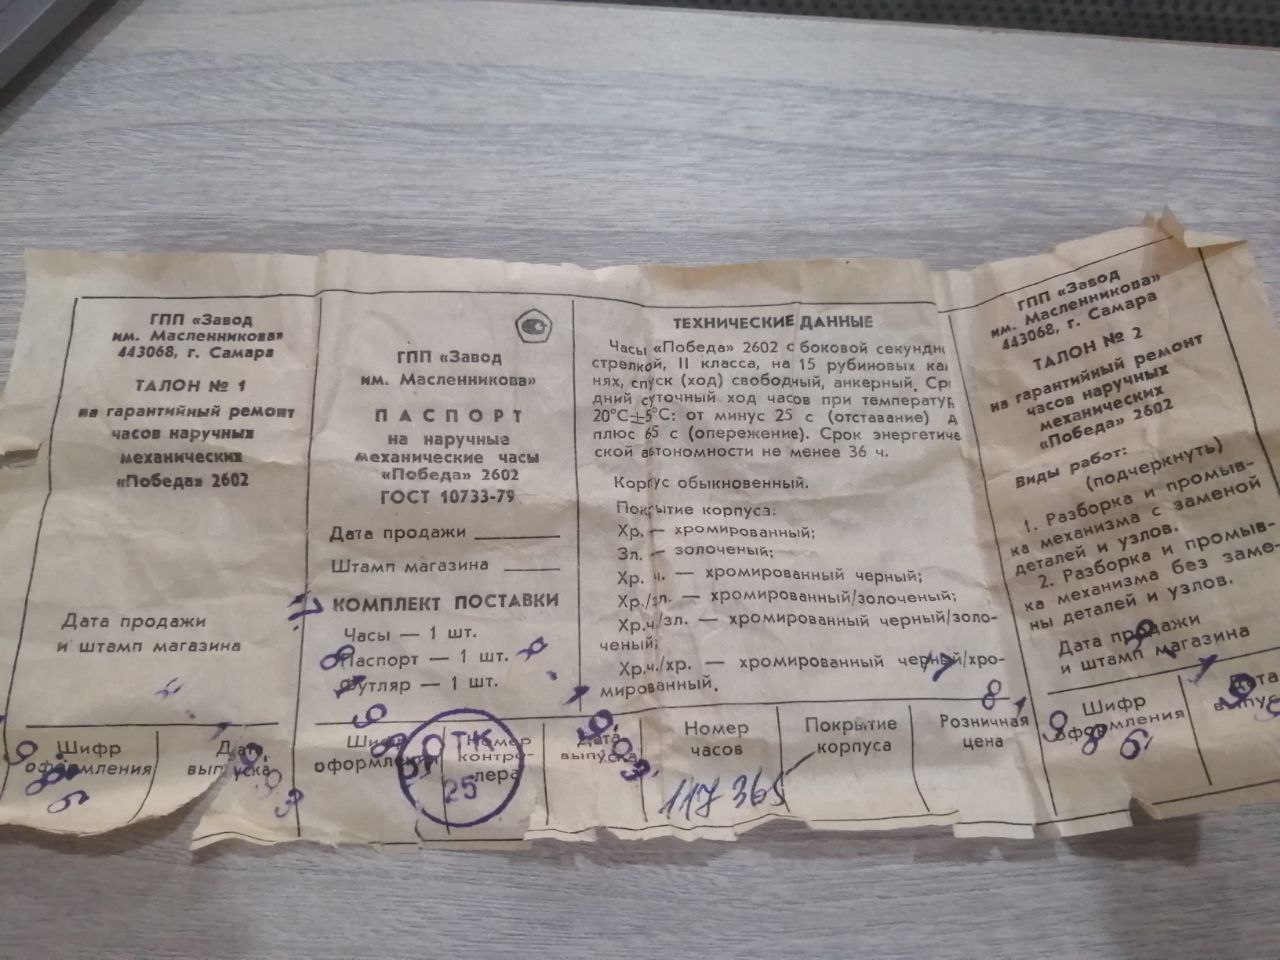 ГПП «Завод
им. Масленникова»
443068, г. Самара
ТАЛОН № 1
на гарантийный ремонт
часов наручных
механических
«Победа» 2602
Дата продажи
и штамп магазина
Шифр
оформления
Дата
выпуска
ГПП «Завод
им. Масленникова»
ПАСПОРТ
на наручные
механические часы
«Победа» 2602
ГОСТ 10733-79
Дата продажи
Штамп магазина
КОМПЛЕКТ ПОСТАВКИ
Часы — 1 шт.
Паспорт — 1 шт.
Футляр — 1 шт.
Шифр
оформления
Номер
контро-
лера
ТК
25
Дата
выпуска
ТЕХНИЧЕСКИЕ ДАННЫЕ
Часы «Победа» 2602 с боковой секундн
стрелкой, II класса, на 15 рубиновых ка
нях, спуск (ход) свободный, анкерный. Ср
дний суточный ход часов при температур
20°C±5°C: от минус 25 с (отставание) д
плюс 65 с (опережение). Срок энергетиче
ской автономности не менее 36 ч.
Корпус обыкновенный.
Покрытие корпуса:
Хр. — хромированный;
Зл. — золоченый;
Хр. ч. — хромированный черный;
Хр./зл. — хромированный/золоченый;
Хр.ч/зл. — хромированный черный/золо-
ченый;
Хр.ч./хр. — хромированный черный/хро-
мированный.
Номер
часов
117365
Покрытие
корпуса
Розничная
цена
ГПП «Завод
им. Масленникова»
443068, г. Самара
ТАЛОН № 2
на гарантийный ремонт
часов наручных
механических
«Победа» 2602
Виды работ:
(подчеркнуть)
1. Разборка и промыв-
ка механизма с заменой
деталей и узлов.
2. Разборка и промыв-
ка механизма без заме-
ны деталей и узлов.
Дата продажи
и штамп магазина
Шифр
оформления
Дата
выпуск